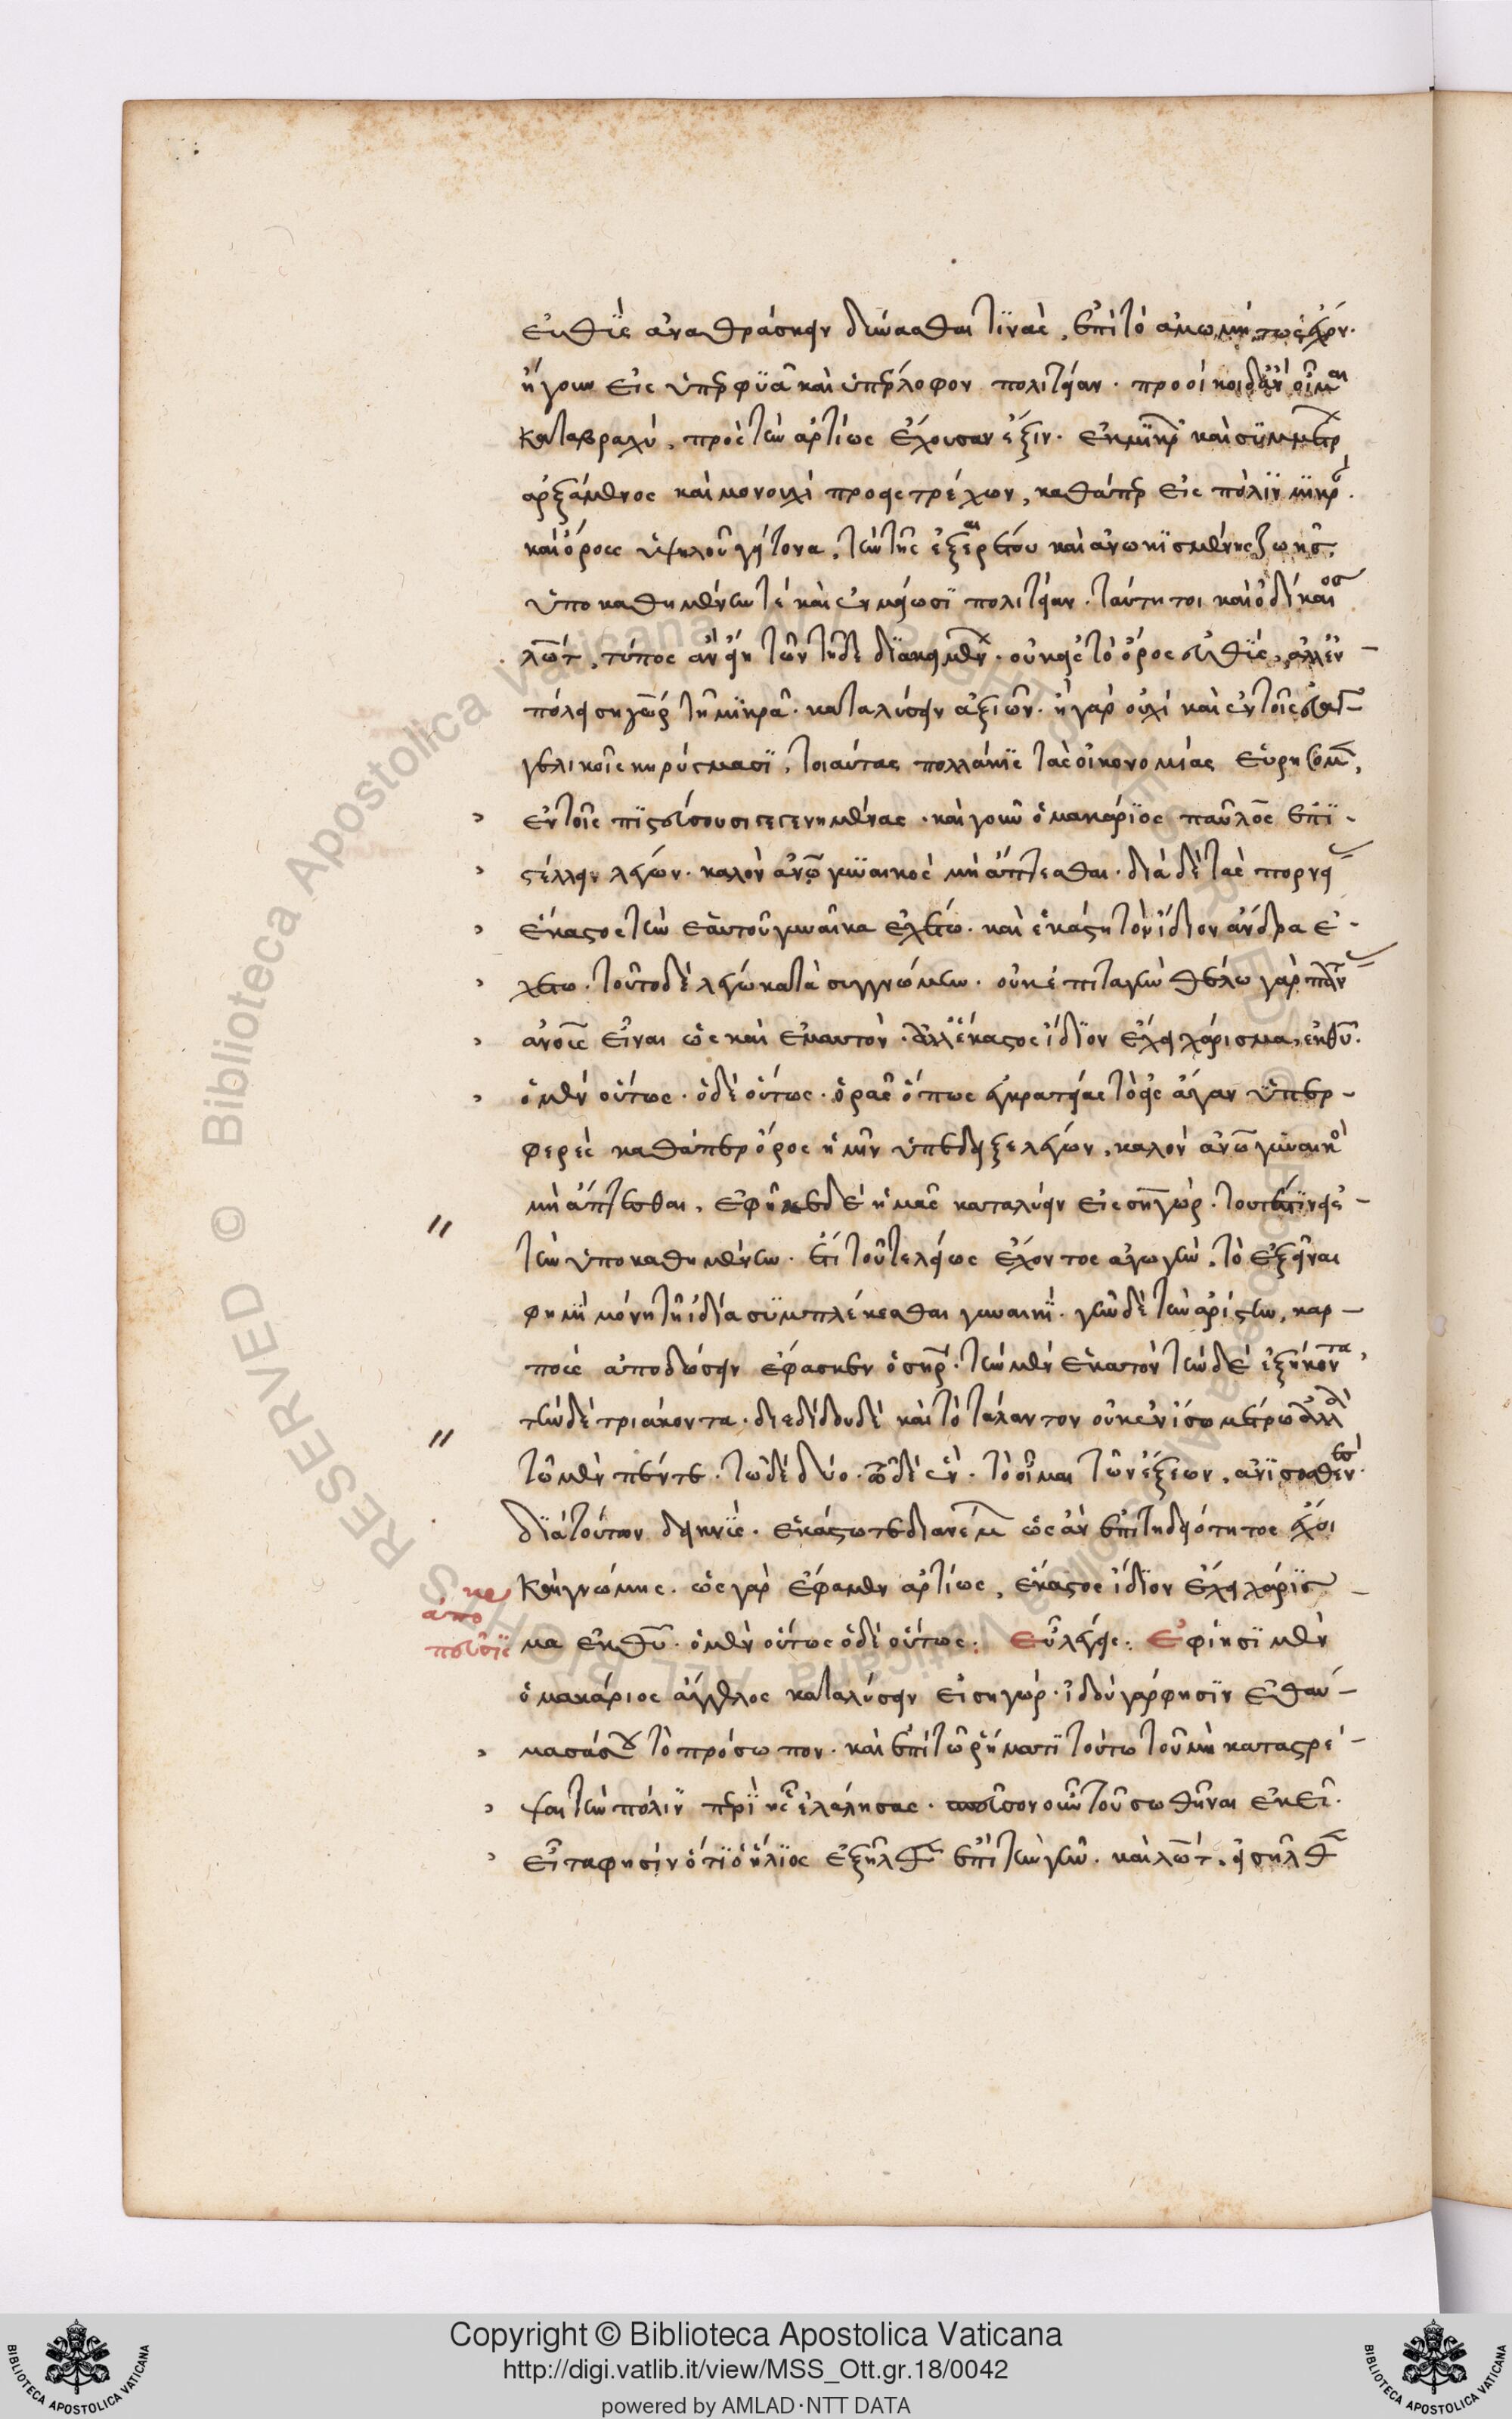 εὐθὺς ἀναθρώσκειν δύνασθαι τινὰς, ἐπὶ τὸ ἀμωμήτως ἔχον.
ἤγουν εἰς ὑπερφυᾶ καὶ ὑπέρλοφον πολιτείαν. προσήκοι δ' ἂν οἶμαι
κατὰ βραχὺ, πρὸς τὴν ἀρτίως ἔχουσαν ἕξιν. ἐκ μικρῶν καὶ συμμέτρων
ἀρξάμενος καὶ μονονουχὶ προστρέχων, καθάπερ εἰς πόλιν μικρὰν.
καὶ ὄρους ὑψηλοῦ γείτονα, τὴν τῆς ἐξαιρέτου καὶ ἀνωκισμένης ζωῆς,
ὑποκαθημένην τὲ καὶ ἐν μείωσι πολιτείαν. ταύτητοι καὶ ὁ δίκαιος
λὼτ, τύπος ἂν εἴη τῶν τῇδε διακειμένων. οὐκ εἰς τὸ ὄρος εὐθὺς, ἀλλ' ἐν
πόλει σηγὼρ τῇ μικρᾷ. καταλύσειν ἀξιῶν. ἢ γὰρ οὐχὶ καὶ ἐν τοῖς εὐαγ
γελικοῖς κηρύγμασι, τοιαύτας πολλάκις τὰς οἰκονομίας εὑρήσομεν,
ἐν τοῖς πιστεύουσι γεγενημένας. καὶ γοῦν ὁ μακάριος παῦλος ἐπι
στέλλει λέγων. καλὸν ἀνθρώπῳ γυναικὸς μὴ ἅπτεσθαι. διὰ δὲ τὰς πορνείας
ἕκαστος τὴν ἑαυτοῦ γυναῖκα ἐχέτω. καὶ ἑκάστη τὸν ἴδιον ἄνδρα ἐ
χέτω. τοῦτο δὲ λέγω κατὰ συγγνώμην. οὐ κατ' ἐπιταγὴν θέλω γὰρ πάντας
ἀνθρώπους εἶναι ὡς καὶ ἐμαυτὸν. ἀλλ' ἕκαστος ἴδιον ἔχει χάρισμα, ἐκ θεοῦ.
ὁ μὲν οὕτως. ὁ δὲ οὕτως. ὁρᾷς ὅπως ἐγκρατείας τὸ εἰς ἄγαν ὑπερ
φερὲς καθάπερ ὄρος ἡμῖν ὑπέδειξε λέγων, καλὸν ἀνθρώπῳ γυναικὸς
μὴ ἅπτεσθαι, ἐφῆκε δὲ ἡμᾶς καταλύειν εἰς σηγὼρ. τουτέστιν εἰς
τὴν ὑποκαθημένην. ἔτι τοῦ τελείως ἔχοντος ἀγωγὴν, τὸ ἐξεῖναι
φημὶ μόνῃ τῇ ἰδίᾳ συμπλέκεσθαι γυναικί. γῆν δὲ τὴν ἀρίστην, καρ
ποὺς ἀποδώσειν ἔφασκεν ὁ σωτὴρ. τὴν μὲν ἑκατὸν τὴν δὲ ἑξήκοντα,
τὴν δὲ τριάκοντα. διεδίδου δὲ καὶ τὸ τάλαντον οὐκ ἐν ἴσῳ μέτρῳ ἀλλὰ
τῷ μὲν πέντε. τῷ δὲ δύο. τῷ δὲ ἓν. τὸ οἶμαι τῶν ἕξεων, ἀνισοσθενὲς
διὰ τούτων δεικνὺς. ἑκάστῳ τε διανέμων ὡς ἂν ἐπιτηδειότητος ἔχοι
καὶ γνώμης. ὡς γὰρ ἔφαμεν ἀρτίως, ἕκαστος ἴδιον ἔχει χάρισ
μα ἐκ θεοῦ. ὁ μὲν οὕτως ὁ δὲ οὕτως. Εὖ λέγεις. Ἐφίησι μὲν
ὁ μακάριος ἄγγελος καταλύσειν εἰς σηγὼρ. ἰδοὺ γάρ φησιν ἐθαύ
μασά σου τὸ πρόσωπον. καὶ ἐπὶ τῷ ῥήματι τούτῳ τοῦ μὴ καταστρέ
ψαι τὴν πόλιν περὶ ἧς ἐλάλησας. σπεῦσον οὖν τοῦ σωθῆναι ἐκεῖ.
εἶτα φησὶν ὅτι ὁ ἥλιος ἐξῆλθεν ἐπὶ τὴν γῆν. καὶ λὼτ, εἰσῆλθεν
Copyright © Biblioteca Apostolica Vaticana
http://digi.vatlib.it/view/MSS_Ott.gr.18/0042
powered by AMLAD·NTT DATA